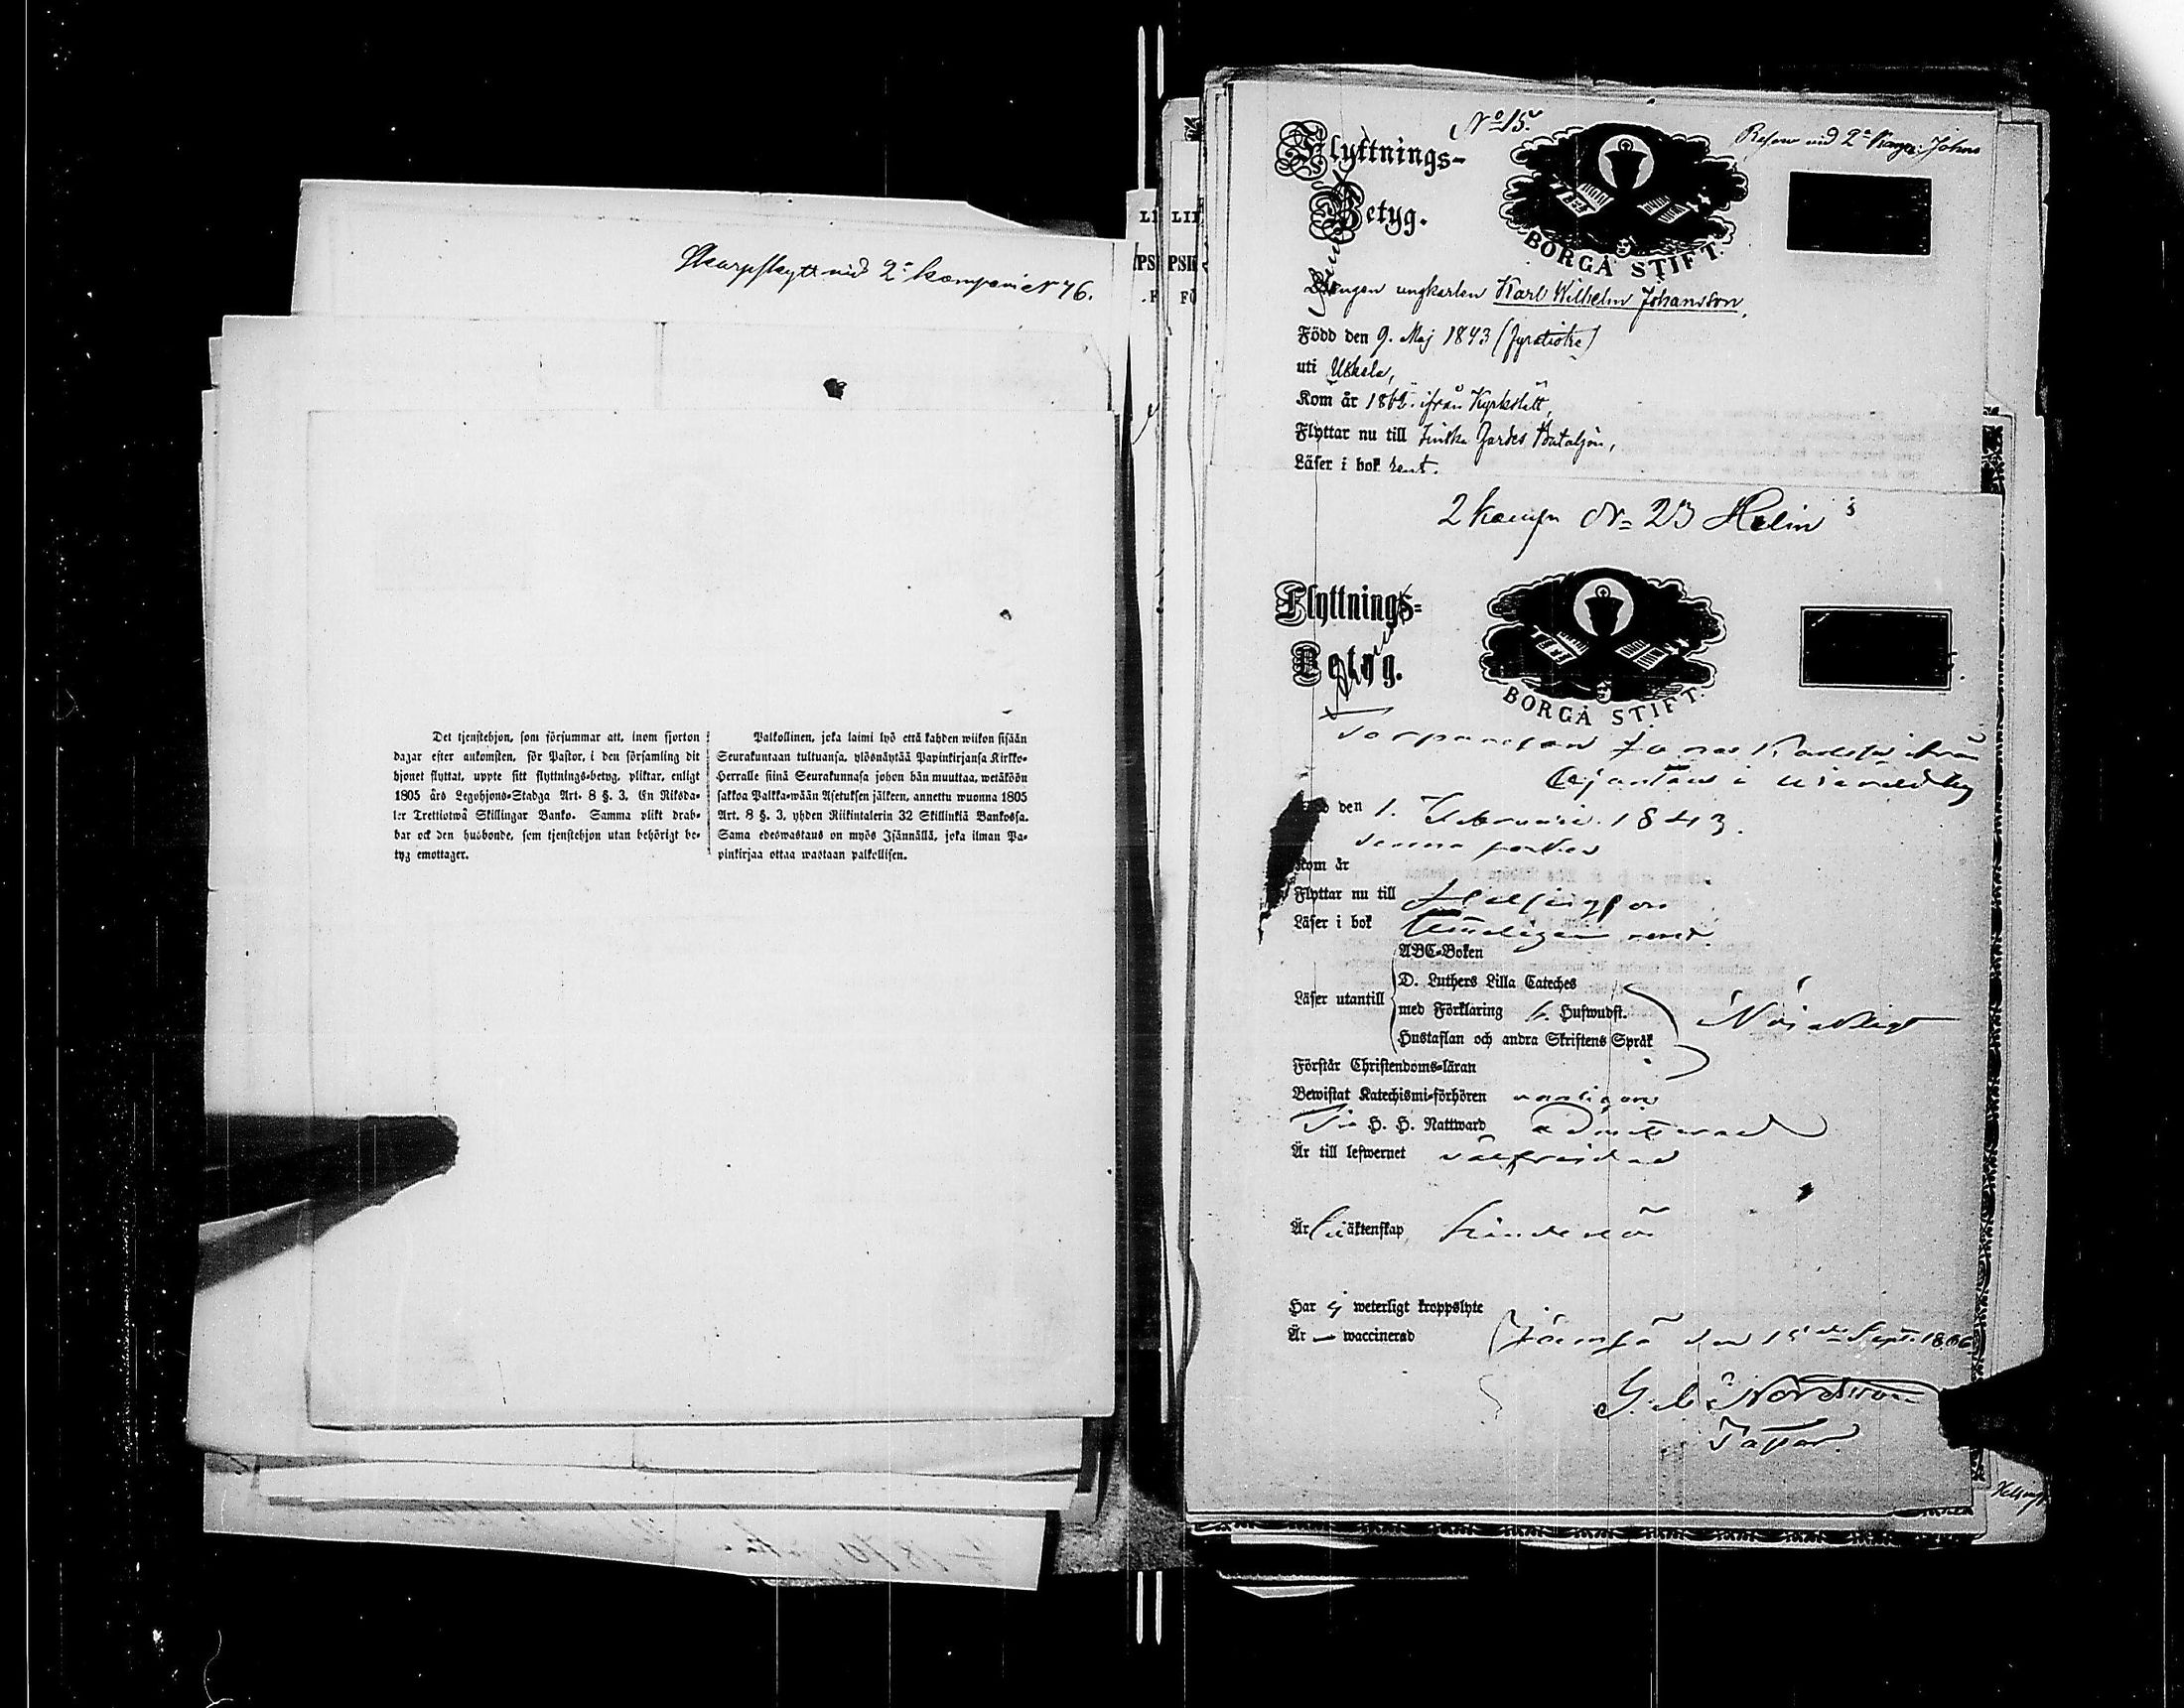 Skarpskytt vid 2a kompaniet N 76.
Det tjenstehjon, som försummar att, inom fjorton
dagar efter ankomsten, för Pastor, i den församling dit
hjonet flyttat, uppte sitt flyttnings-betyg, pliktar, enligt
1805 års Legohjons-Stadga Art. 8 §. 3, En Riksda-
ler Trettiotwå Skillingar Banko. Samma plikt drab-
bar ock den husbonde, som tjenstehjon utan behörigt be-
tyg emottager.
Palkollinen, joka laimi lyö että kahden wiikon sisään
Seurakuntaan tultuansa, ylösnäytää Papinkirjansa Kirkko-
Herralle siinä Seurakunnasa johon hän muuttaa, wetäköön
sakkoa Palkka-wään Asetuksen jälkeen, annettu wuonna 1805
Art. 8 §. 3, yhden Riikintalerin 32 Skillinkiä Bankossa.
Sama edeswastaus on myös Isännällä, joka ilman Pa-
pinkirjaa ottaa wastaan palkollisen.
LI LII
PS PSI
FÖ
No 15.
vid 2a Komp: Johns
Flyttnings-
Betyg.
BORGÅ STIFT.
Drengen ungkarlen Karl Wilhelm Johansson,
Född den 9. Maj 1843 (fyratiotre)
uti Uskela,
Kom år 1862. ifrån Kyrkslätt,
Flyttar nu till Finska Gardes Bataljon,
Läser i bok rent.
2 komp No 23 Helin
Flyttnings-
Betyg.
BORGÅ STIFT.
Torparesonen Jonas
i
den 1. Februarii 1843.
denna socken
Kom år
Flyttar nu till Helsingfors
Läser i bok rent.
ABC-Boken
D. Luthers Lilla Cateches
Läser utantill med Förklaring Hufwudst.
Hustaflan och andra Skriftens Språk
Nöjaktigt
Förstår Christendoms-läran
Bewistat Katechismi-förhören vanligen
Till H. H. Nattward admitterad
Är till lefwernet välfrejdad
Är till äktenskap hinderlös
Har ej weterligt kroppslyte
Är — waccinerad
Jämsä den 15de Sept. 1866
Pastor.